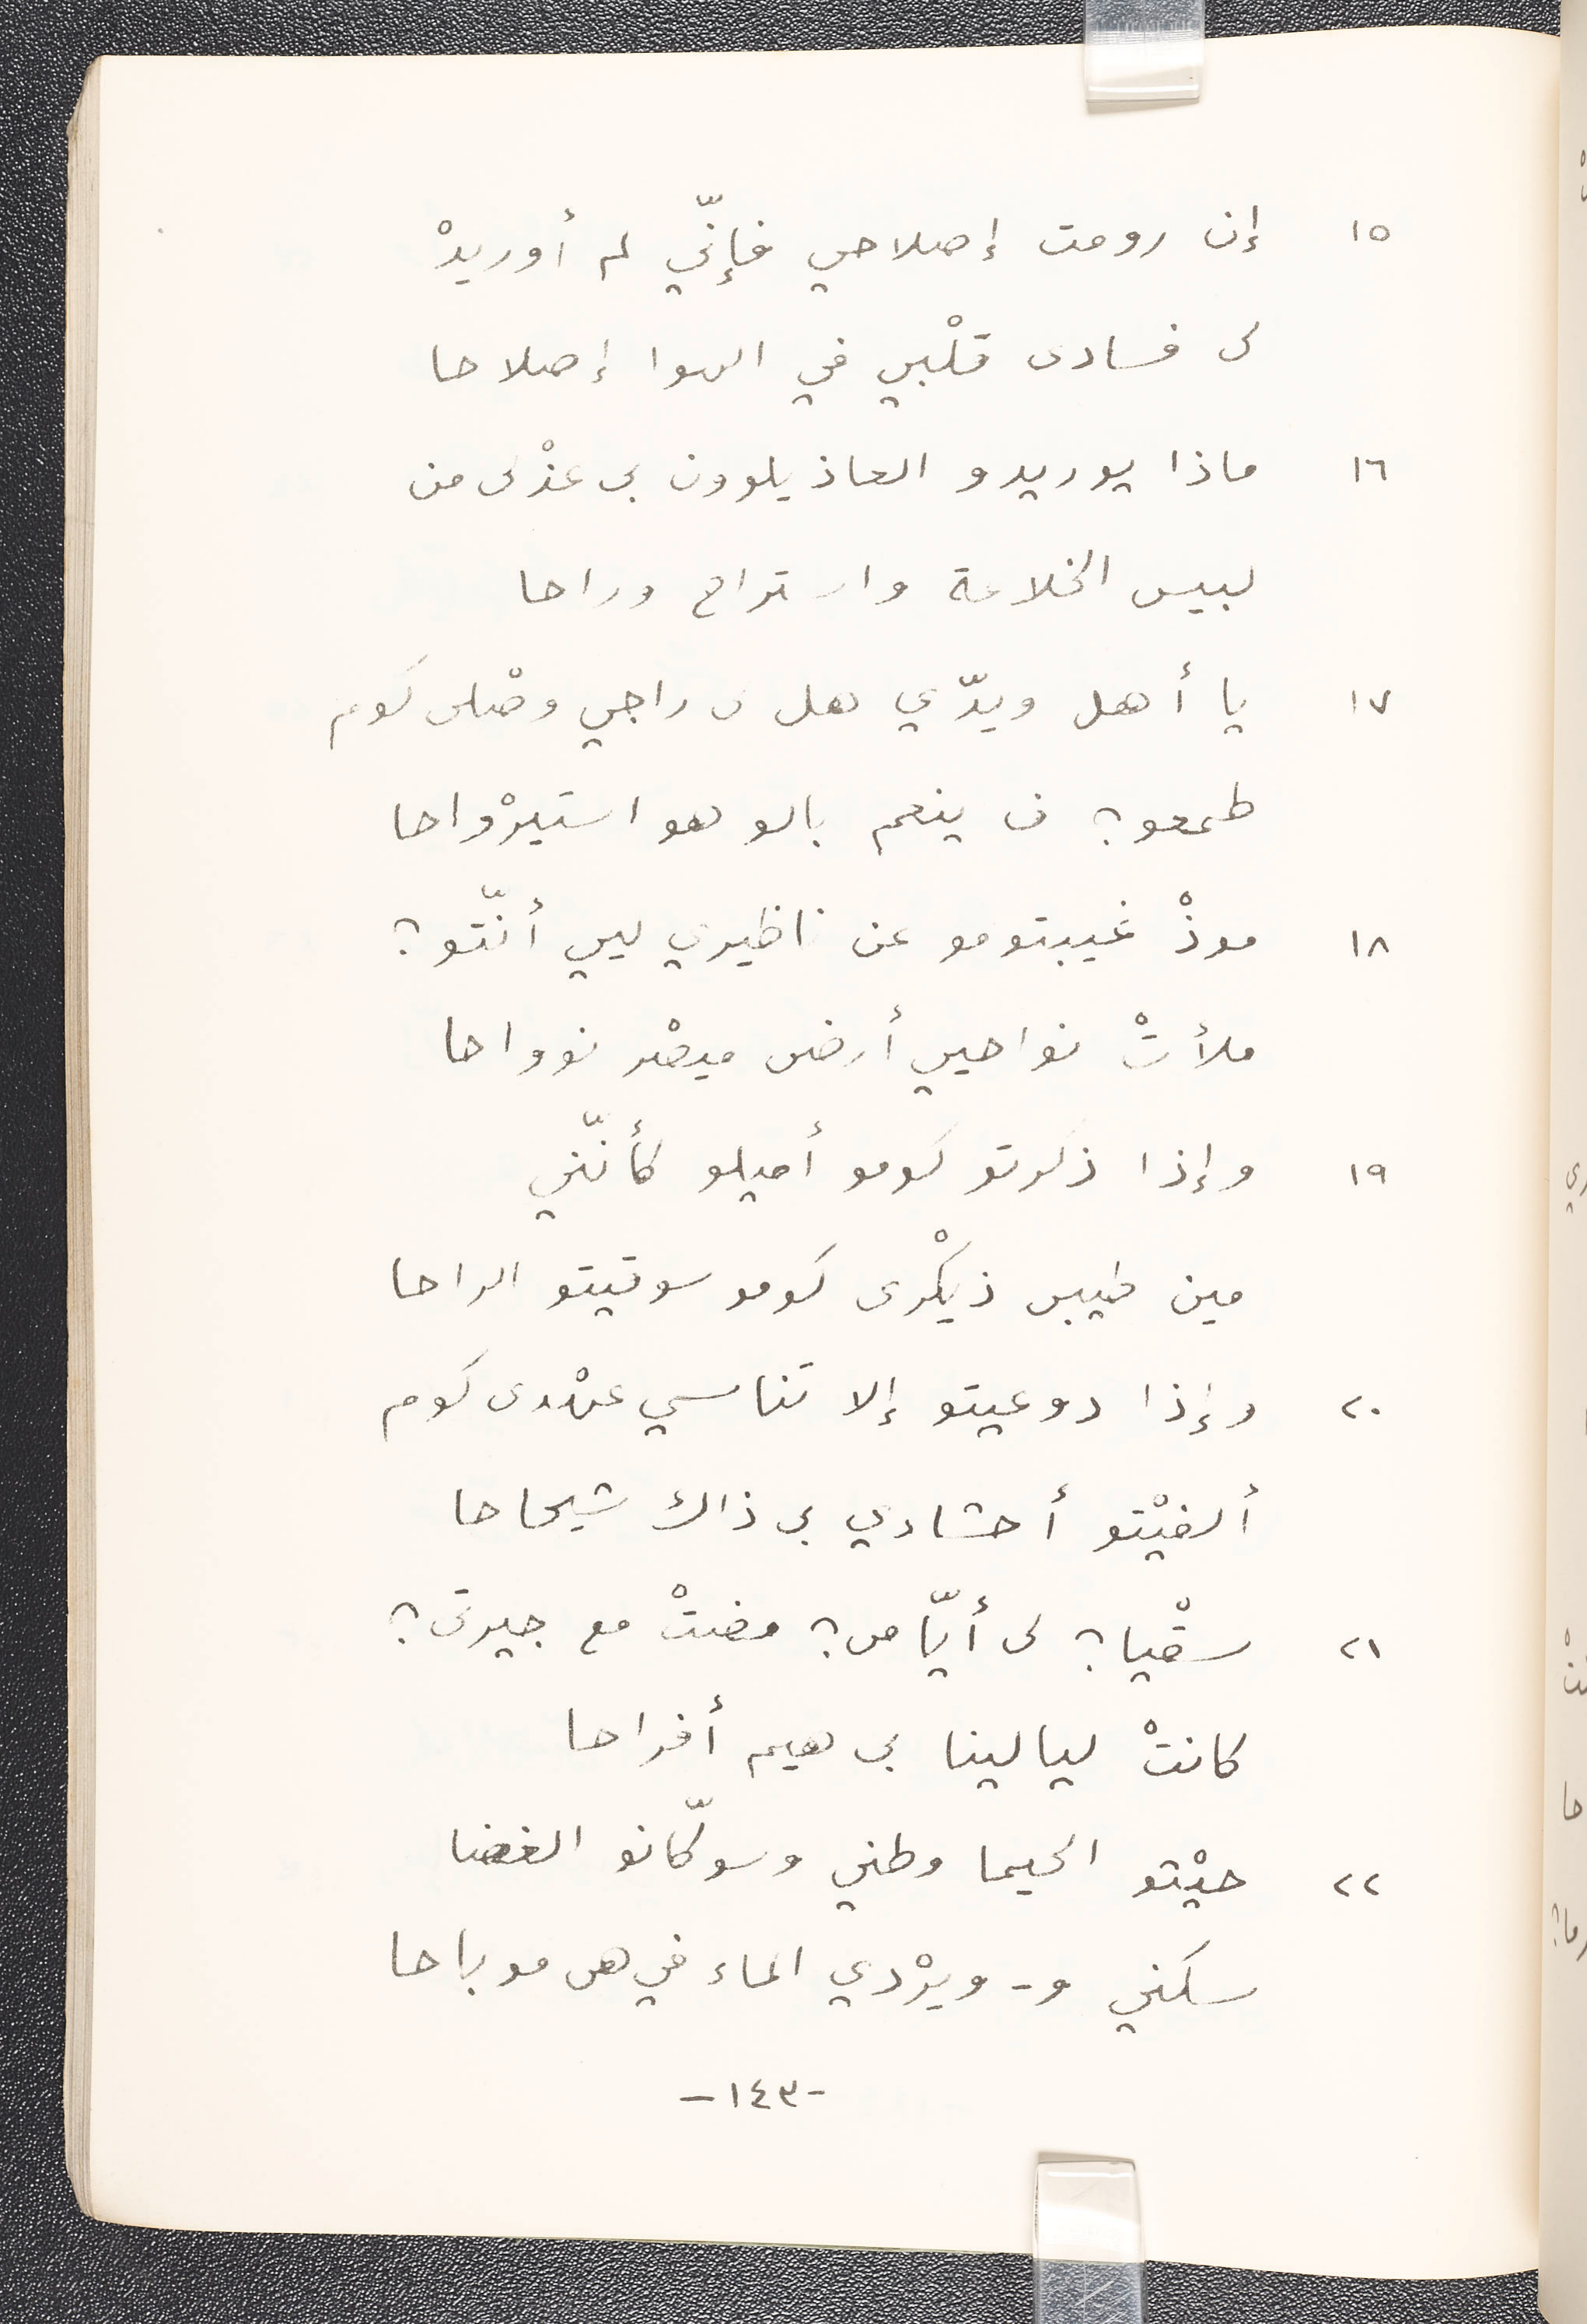 ١٥ إن رومت إصلاحي فإنّي لم أوريدْ
لى فسادى قلْبي في الهوا إصلاحا
١٦ ماذا يوريدو العاذيلوون بى عذْلى من
لبيس الخلاعة واستراح وراحا
١٧ يا أهل ويدّي هل ى راجي وصْلى كوم
طمعو؟ ف ينعم بالو هو استيرْواحا
١٨ موذْ غيبتومو عن ناظيري ليي أنّتو؟
ملأتْ نواحيي أرض ميصْر نوواحا
١٩ وإذا ذكرتو كومو أميلو كأنّني
مين طيبى ذيكْرى كومو سوقيتو الراحا
٢٠ وإذا دوعيتو إلا تناسي عهْدى كوم
ألفيْتو أحشاءي بى ذاك شيحاحا
٢١ سقْيا؟ لى أيّامى؟ مضتْ مع جيرتى؟
كانتْ ليالينا بى هيم أفراحا
٢٢ حيْتو الحيما وطني وسوكّانو الغضا
سكني و- ويرْدي الماء في هى موباحا
-١٤٣-